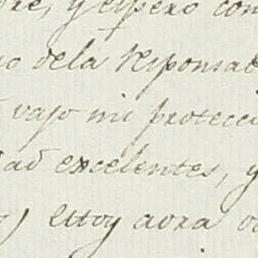 re, y espero con
o dela responsab
vajo mi protecci
ad excelentes, y
) estoy aora o